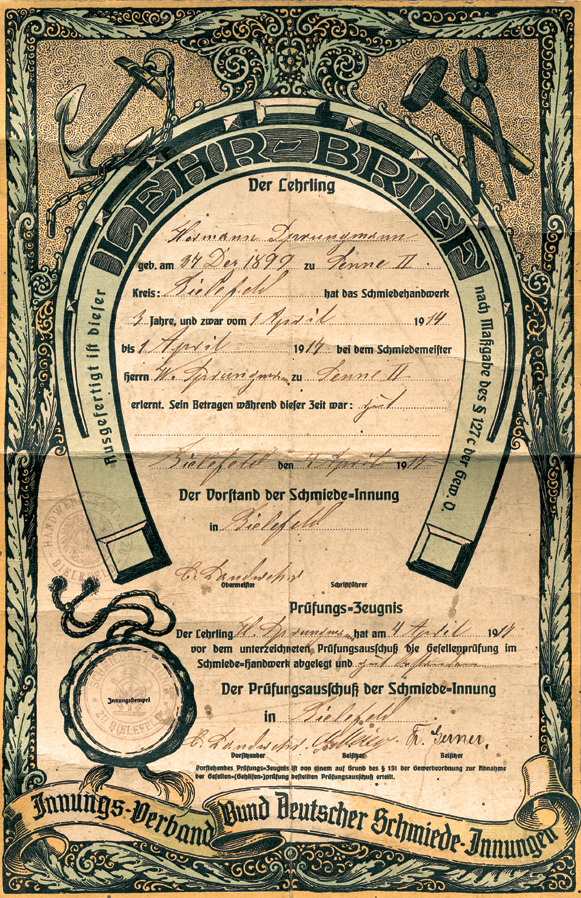 LEHR-BRIEF
Ausgefertigt ist dieser
nach Maßgabe des § 127c der Gew. O.
Der Lehrling
Hermann Sprungmann
geb. am 27 Dez 1899 zu Senne II
Kreis: Bielefeld hat das Schmiedehandwerk
3 Jahre, und zwar vom 1 April 1914
bis 1 April 1917 bei dem Schmiedemeister
Herrn W. Sprungmann zu Senne II
erlernt. Sein Betragen während dieser Zeit war: gut
Bielefeld den April 19
Der Vorstand der Schmiede-Innung
in Bielefeld
Landwehr
Obermeister Schriftführer
Prüfungs-Zeugnis
Der Lehrling Sprungmann hat am 4 April 1917
vor dem unterzeichneten Prüfungsausschuß die Gesellenprüfung im
Schmiede-Handwerk abgelegt und gut bestanden
Der Prüfungsausschuß der Schmiede-Innung
in Bielefeld
Landwehr Fr. Gerner.
Vorsitzender Beisitzer Beisitzer
Vorstehendes Prüfungs-Zeugnis ist von einem auf Grund des § 131 der Gewerbeordnung zur Abnahme
der Gesellen-(Gehilfen-)prüfung bestellten Prüfungsausschuß erteilt.
Innungsstempel
ZU BIELEFELD
HANDWERK
Innungs-Verband Bund Deutscher Schmiede-Innungen